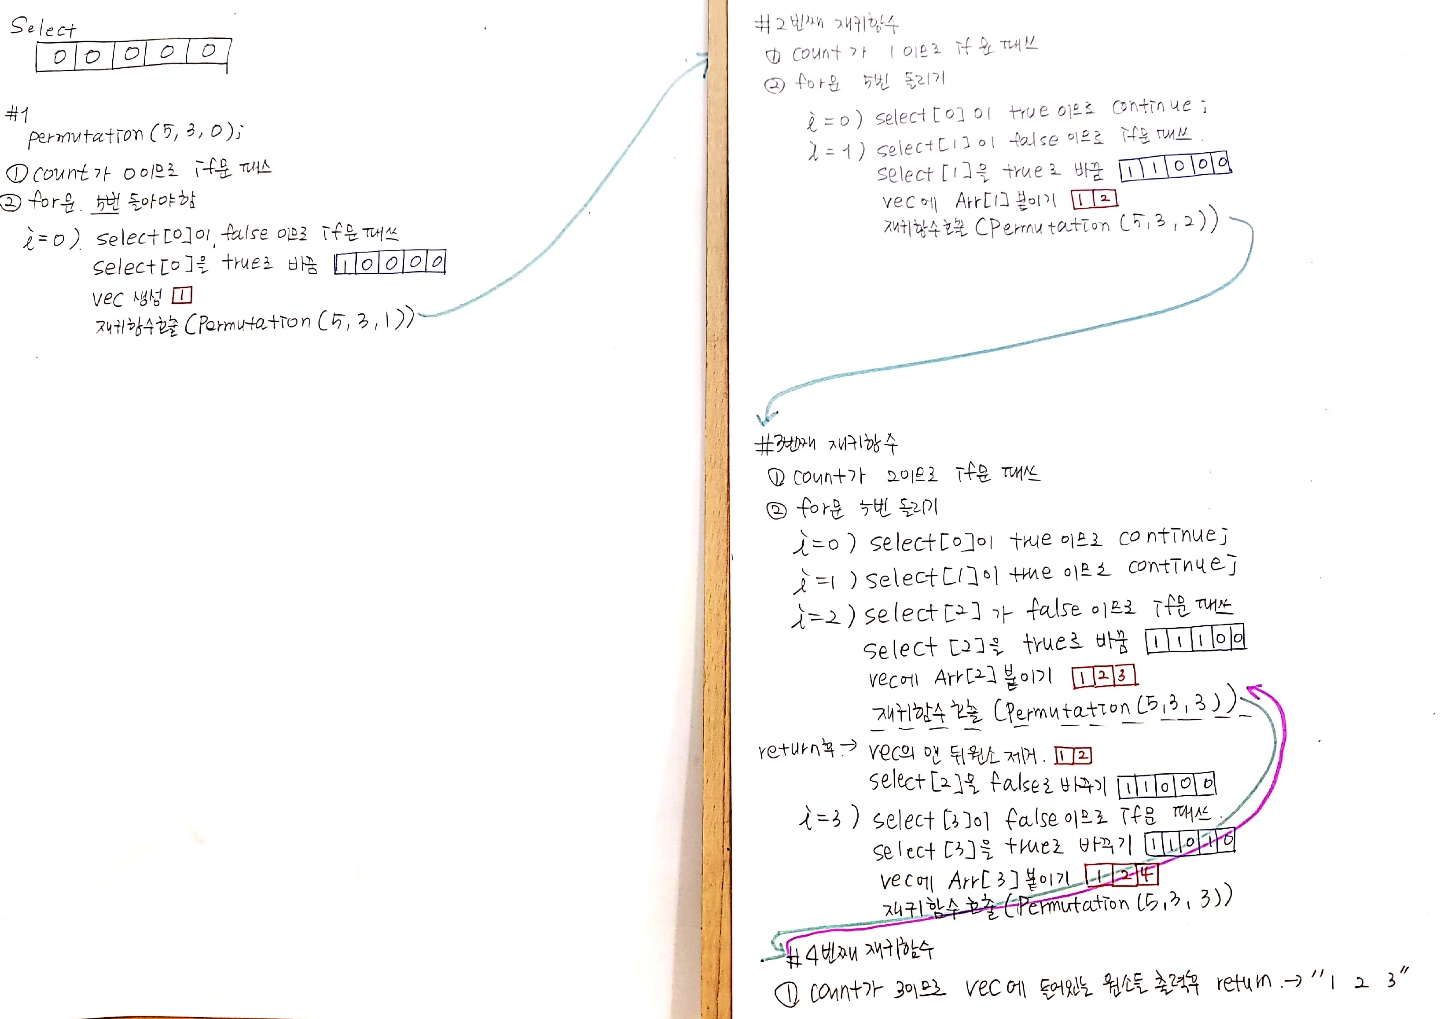 Select
0 0 0 0 0
#1
permutation(5,3,0);
① count가 0이므로 if문 패스
② for문 5번 돌아야함
i=0) select[0]이 false 이므로 if문 패쓰
select[0]을 true로 바꿈 1 0 0 0 0
vec 생성 1
재귀함수호출(Permutation(5,3,1))
#2번째 재귀함수
① count가 1이므로 if문 패쓰
② for문 5번 돌리기
i=0) select[0]이 true이므로 continue;
i=1) select[1]이 false이므로 if문 패쓰.
select[1]을 true로 바꿈 1 1 0 0 0
vec에 Arr[1] 붙이기 1 2
재귀함수호출(Permutation(5,3,2))
#3번째 재귀함수
① count가 2이므로 if문 패쓰
② for문 5번 돌리기
i=0) select[0]이 true이므로 continue;
i=1) select[1]이 true이므로 continue;
i=2) select[2]가 false이므로 if문 패쓰
select[2]을 true로 바꿈 1 1 1 0 0
vec에 Arr[2] 붙이기 1 2 3
재귀함수호출(Permutation(5,3,3))
return후→ vec의 맨 뒤 원소 제거. 1 2
select[2]을 false로 바꾸기 1 1 0 0 0
i=3) select[3]이 false이므로 if문 패쓰.
select[3]을 true로 바꾸기 1 1 0 1 0
vec에 Arr[3] 붙이기 1 2 4
재귀함수호출(Permutation(5,3,3))
#4번째 재귀함수
① count가 3이므로 vec에 들어있는 원소들 출력후 return.→"1 2 3"